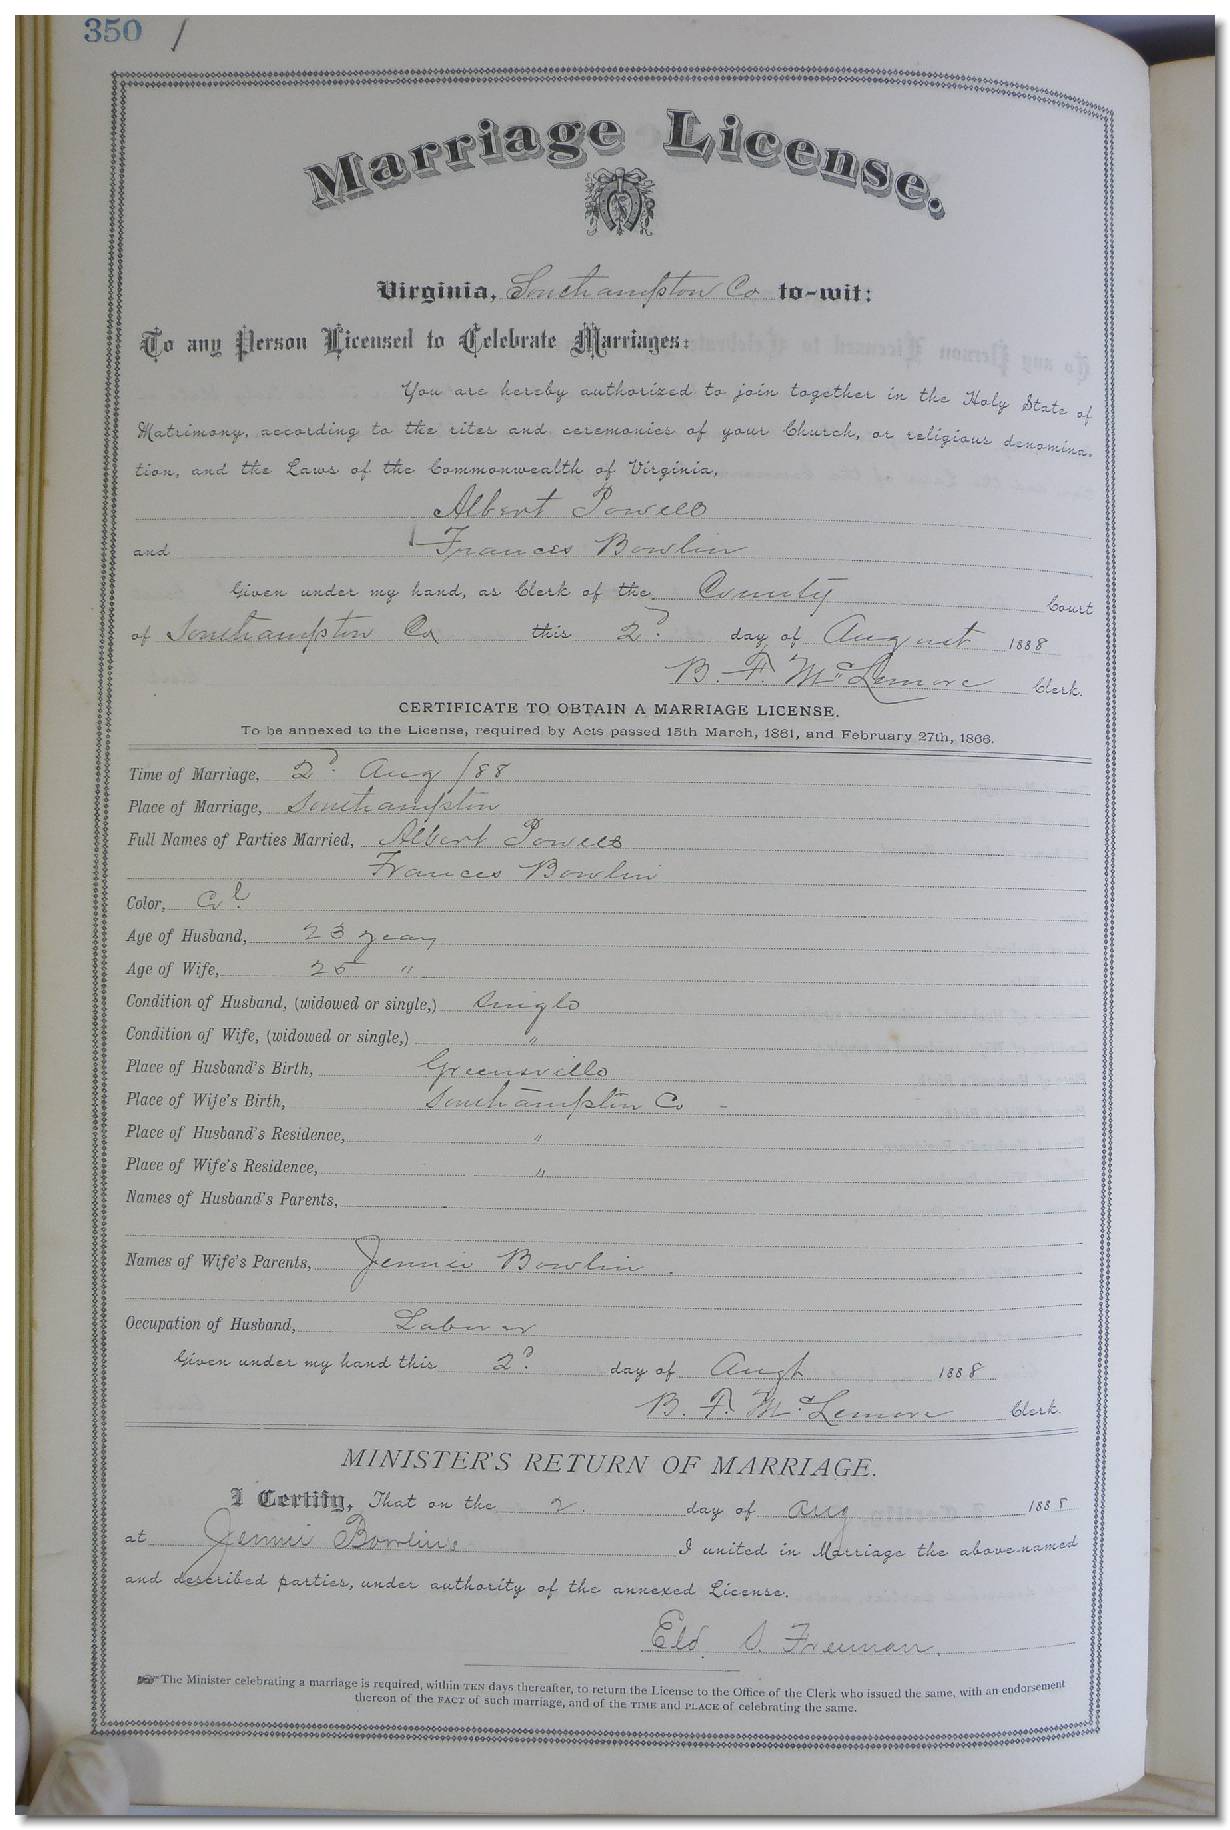 350 /
Marriage License.
Virginia, Southampton Co to-wit:
To any Person Licensed to Celebrate Marriages:
You are hereby authorized to join together in the Holy State of
Matrimony, according to the rites and ceremonies of your Church, or religious denomina-
tion, and the Laws of the Commonwealth of Virginia,
Albert Powell
and Frances Bowlin
Given under my hand, as Clerk of the County Court
of Southampton Co this 2d. day of August 1888
B. F. McLemore Clerk.
CERTIFICATE TO OBTAIN A MARRIAGE LICENSE.
To be annexed to the License, required by Acts passed 15th March, 1861, and February 27th, 1866.
Time of Marriage, 2d. Aug /88
Place of Marriage, Southampton
Full Names of Parties Married, Albert Powell
Frances Bowlin
Color, Col.
Age of Husband, 23 years
Age of Wife, 25 "
Condition of Husband, (widowed or single,) Single
Condition of Wife, (widowed or single,) "
Place of Husband's Birth, Greensville
Place of Wife's Birth, Southampton Co -
Place of Husband's Residence, "
Place of Wife's Residence, "
Names of Husband's Parents,
Names of Wife's Parents, Jennie Bowlin.
Occupation of Husband, Laborer
Given under my hand this 2d. day of Augt 1888
B. F. McLemore Clerk.
MINISTER'S RETURN OF MARRIAGE.
I Certify, That on the 2. day of Aug 1888
at Jennie Bowlins I united in Marriage the above-named
and described parties, under authority of the annexed License.
Eld. S. Freeman.
☞ The Minister celebrating a marriage is required, within TEN days thereafter, to return the License to the Office of the Clerk who issued the same, with an endorsement
thereon of the FACT of such marriage, and of the TIME and PLACE of celebrating the same.